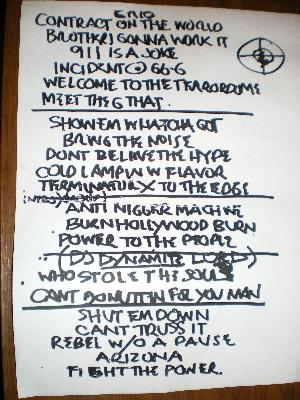 CONTRACT ON THE WORLD
BROTHERS GONNA WORK IT
911 IS A JOKE
INCIDENT @ 66.6
WELCOME TO THE TERRORDOME
MEET THE G THAT
SHOW EM WHATCHA GOT
BRING THE NOISE
DONT BELIEVE THE HYPE
COLD LAMPIN W FLAVOR
TERMINATOR X TO THE EDGE
ANTI NIGGER MACHINE
BURN HOLLYWOOD BURN
POWER TO THE PEOPLE
(DJ DYNAMITE LORD)
WHO STOLE THE SOUL
CANT DO NUTTIN FOR YOU MAN
SHUT EM DOWN
CANT TRUSS IT
REBEL W/O A PAUSE
ARIZONA
FIGHT THE POWER